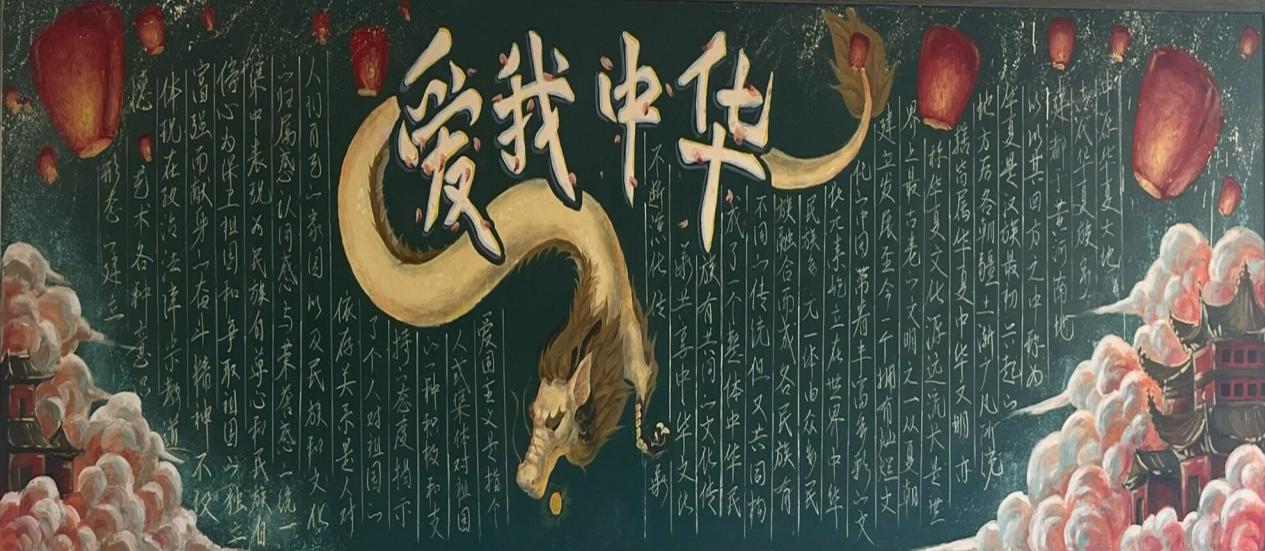 爱我中华
在华夏大地
华夏族
建都于黄河南北
以其因方之中称为
华夏是汉族最初兴起的
地方后各朝疆土渐广凡所统
辖皆属华夏中华文明亦
称华夏文化源远流长是世
界上最古老的文明之一从夏朝
建立发展至今一千拥有灿烂文
化的中国带着丰富多彩的文
化元素屹立在世界中华
民族多元一体由众多民
族融合而成各民族有
不同的传统但又共同构
成了一个整体中华民
族有共同的文化传
承共享中华文化
不断演化传承
爱国主义是指个
人或集体对祖国
的一种积极和支
持态度揭示
了个人对祖国的
依存关系是人对
人们自己的家园以及民族和文化
的归属感认同感与荣誉感的统一
集中表现为民族自尊心和民族自
信心为保卫祖国和争取祖国的独立
富强而献身的奋斗精神不仅
体现在政治法律宗教道
德艺术各种意识
形态的建立